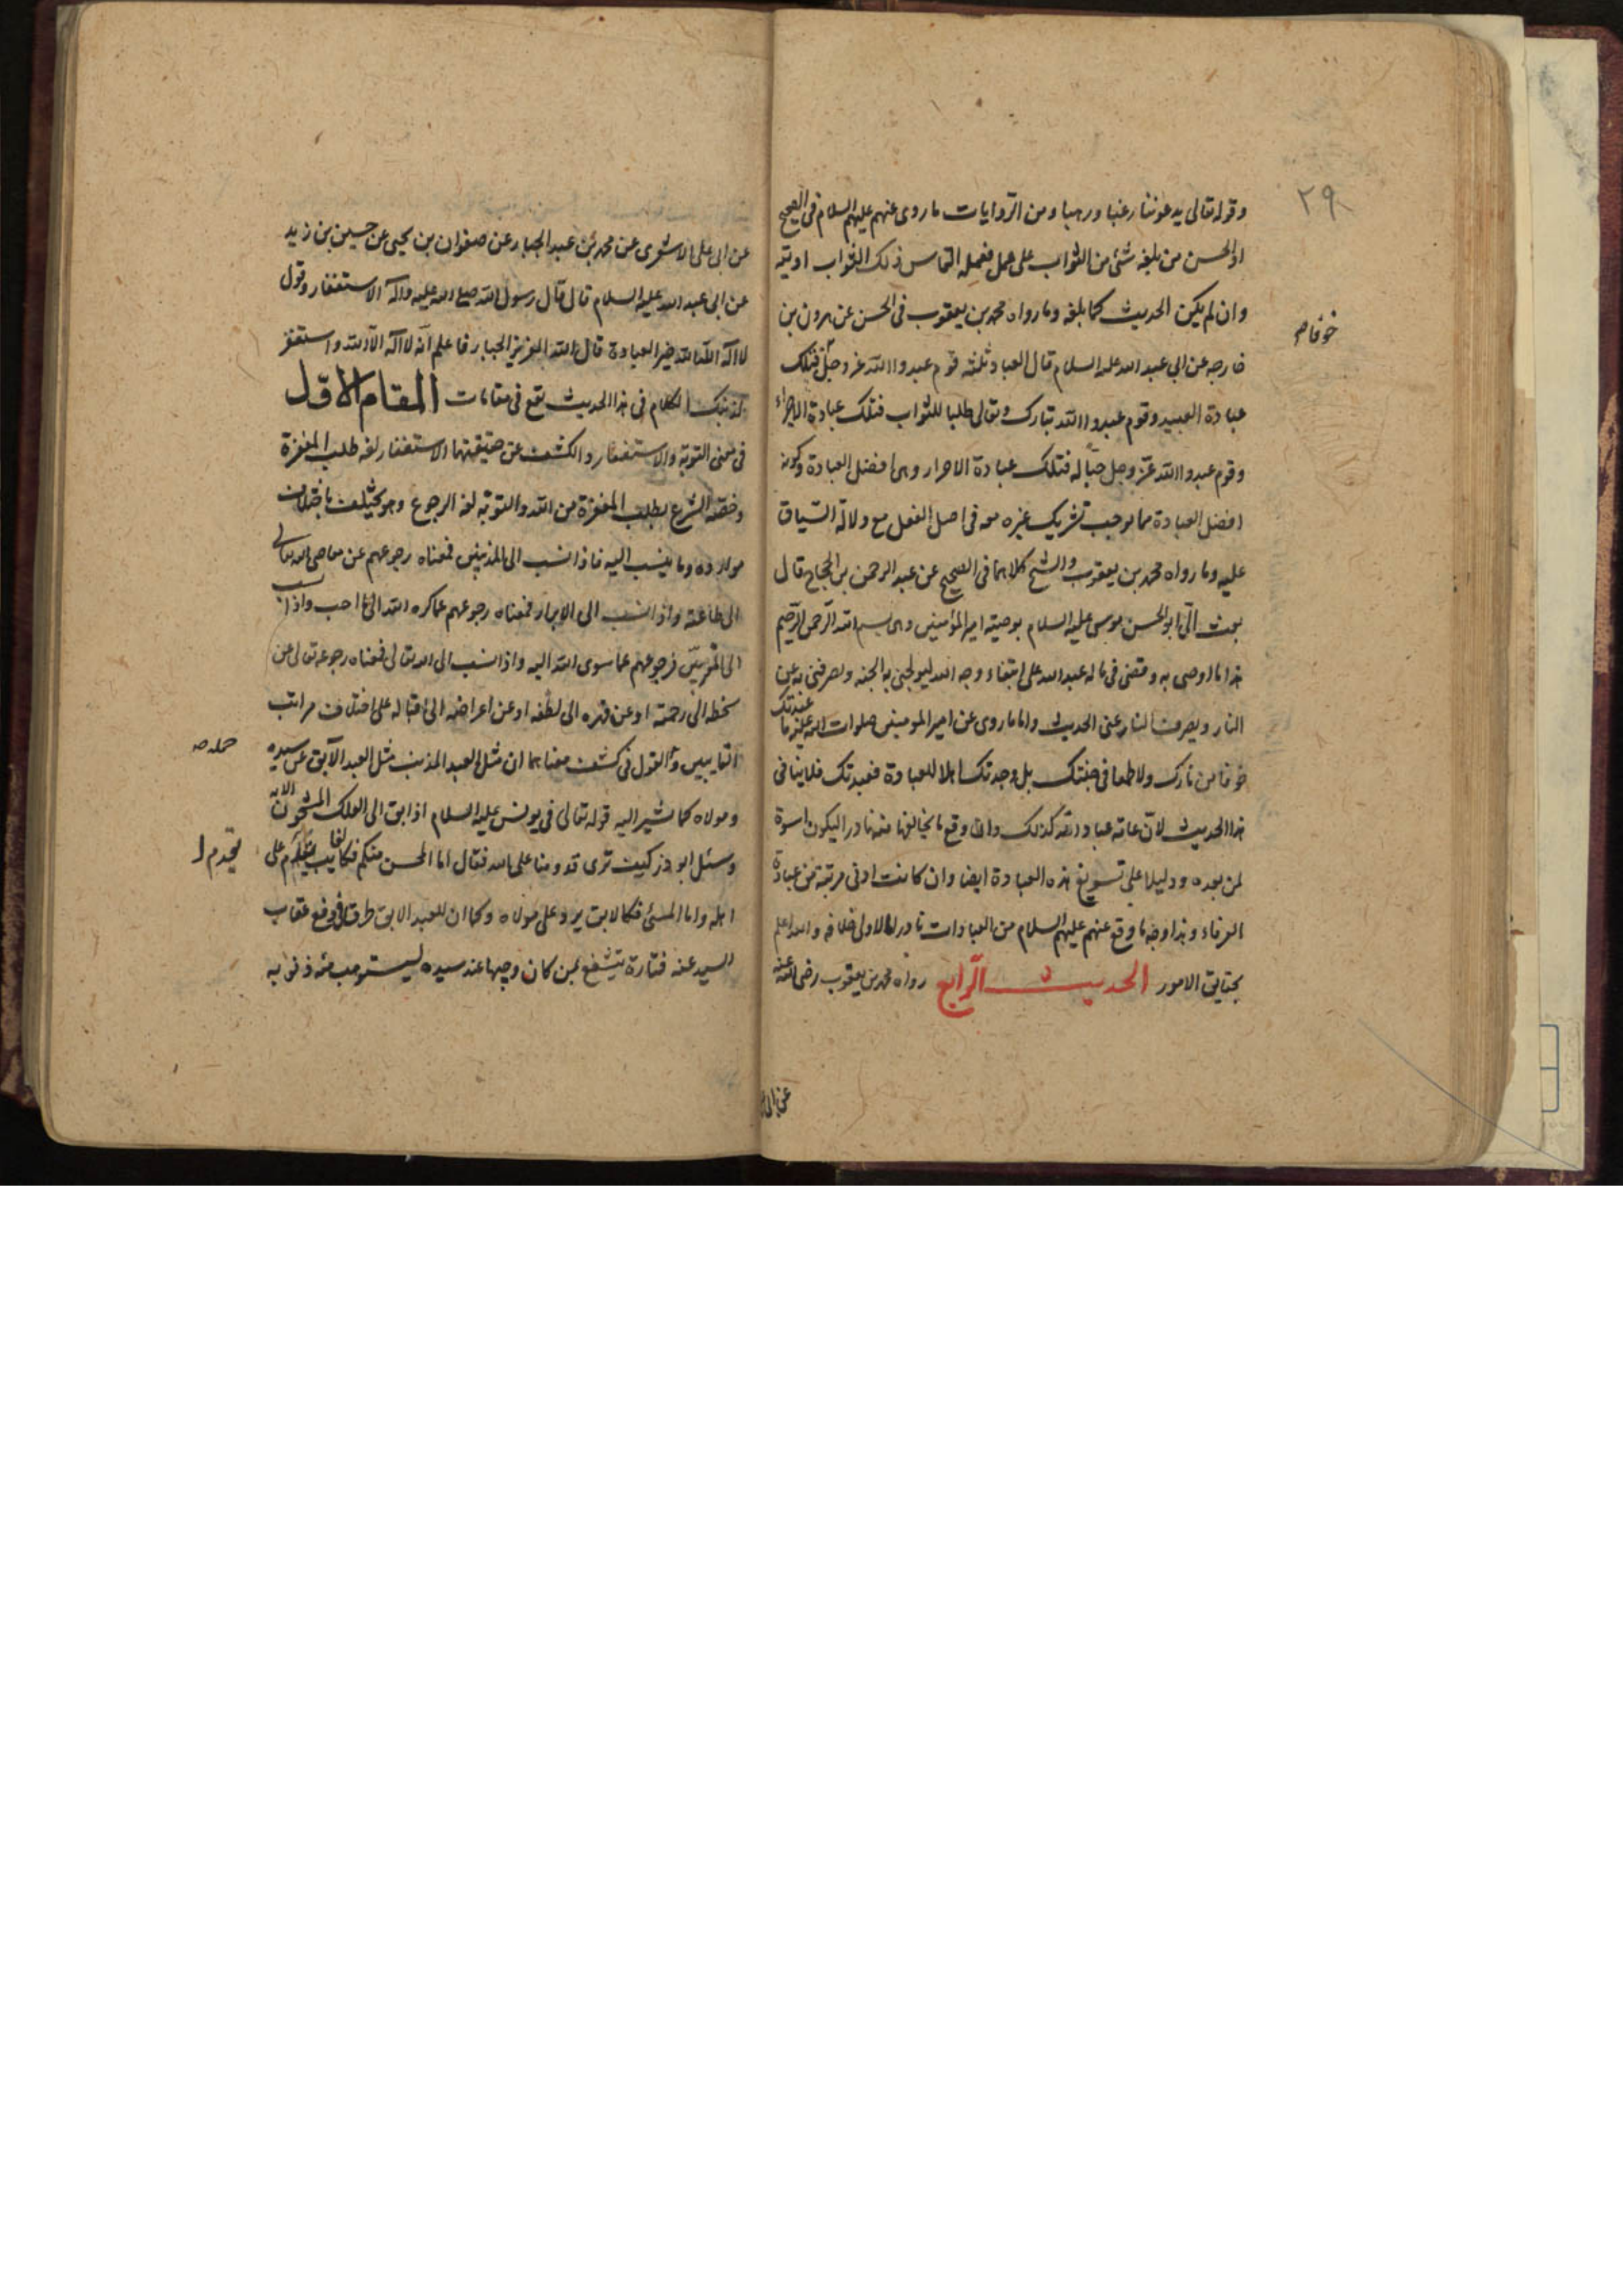 ٢٩
وقوله تعالى يدعوننا رغبا ورهبا ومن الروايات ما روى عنهم عليهم السلام فى الصحيح
او الحسن من بلغه شئ من الثواب على عمل فعمله التماس ذلك الثواب اوتيه
وان لم يكن الحديث كما بلغه وما رواه محمد بن يعقوب فى الحسن عن هرون بن
خوفا
خارجه عن ابى عبد الله عليه السلام قال العباد ثلثه قوم عبدوا الله عز وجل فتلك
عبادة العبيد وقوم عبدوا الله تبارك وتعالى طلبا للثواب فتلك عبادة الاجراء
وقوم عبدوا الله عز وجل حبا له فتلك عبادة الاحرار وهى افضل العبادة وكونه
افضل العبادة مما يوجب تشريك غيره معه فى اصل الفعل مع دلالة السياق
عليه وما رواه محمد بن يعقوب والشيخ كلاهما فى الصحيح عن عبد الرحمن بن الحجاج قال
بعث الى ابو الحسن موسى عليه السلام بوصية امير المؤمنين وهى بسم الله الرحمن الرحيم
هذا ما اوصى به وقضى فى ماله عبد الله على ابتغاء وجه الله ليولجنى به الجنه ويصرفنى به عن
النار ويصرف النار عنى الحديث واما ما روى عن امير المومنين صلوات الله عليه ما عبدتك
خوفا من نارك ولا طمعا فى جنتك بل وجدتك اهلا للعبادة فعبدتك فلا ينافى
هذا الحديث لان عامة عباد الله كذلك وان وقع ما يخالفها منه نادرا ليكون اسوة
لمن بعده ودليلا على تسويغ هذه العبادة ايضا وان كانت ادنى مرتبة من عبادة
العرفاء وهذا وجه ما وقع عنهم عليهم السلام من العبادات نادرا الاولى خلافه والله اعلم
بحقايق الامور الحديث الرابع رواه محمد بن يعقوب رضى الله عنه
عن ابى
عن ابى على الاشعرى عن محمد بن عبد الجبار عن صفوان بن يحيى عن حسين بن زيد
عن ابى عبد الله عليه السلام قال قال رسول الله صلى الله عليه واله الاستغفار وقول
لا اله الا الله خير العبادة قال الله العزيز الجبار فاعلم انه لا اله الا الله واستغفر
لذنبك الكلام فى هذا الحديث يقع فى مقامات المقام الاول
فى معنى التوبة والاستغفار والكشف عن حقيقتها الاستغفار لغه طلب المغفرة
وخصه الشرع بطلب المغفرة من الله والتوبة لغه الرجوع وهو يختلف باختلاف
موارده وما ينسب اليه فاذا نسب الى المذنبين فمعناه رجوعهم عن معاصى الله تعالى
الى طاعته واذا نسب الى الابرار فمعناه رجوعهم عما كره الله الى ما احب واذا نسب
الى المقربين فرجوعهم عما سوى الله اليه واذا نسب الى الله تعالى فمعناه رجوعه تعالى عن
سخطه الى رحمته او عن قهره الى لطفه او عن اعراضه الى اقباله على اختلاف مراتب
التايبين والقول فى كشف معناهما ان مثل العبد المذنب مثل العبد الآبق عن سيده
ومولاه كما يشير اليه قوله تعالى فى يونس عليه السلام اذ ابق الى الفلك المشحون الايه
وسئل ابو ذر كيف ترى قدومنا على الله فقال اما المحسن منكم فكالغايب يقدم على
اهله واما المسئ فكالابق يرد على مولاه وكما ان للعبد الابق طرقا فى دفع عقاب
السيد عنه فتارة يتشفع بمن كان وجيها عند سيده ليستوهب منه ذنوبه